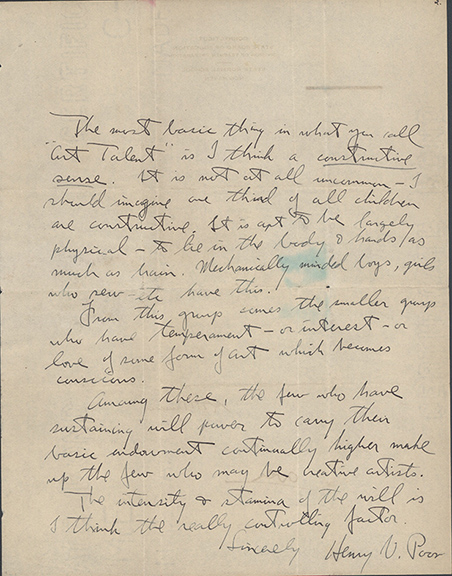 2.
The most basic thing in what you call
"Art Talent" is I think a constructive
sense. It is not at all uncommon – I
should imagine one third of all children
are constructive. It is apt to be largely
physical – to lie in the body & hands as
much as brain. Mechanically minded boys, girls
who sew – etc have this.
From this group comes the smaller group
who have temperament – or interest – or
love of some form of art which becomes
conscious.
Among these, the few who have
sustaining will power to carry their
basic endowment continually higher make
up the few who may be creative artists.
The intensity & stamina of the will is
I think the really controlling factor.
Sincerely Henry V. Poor